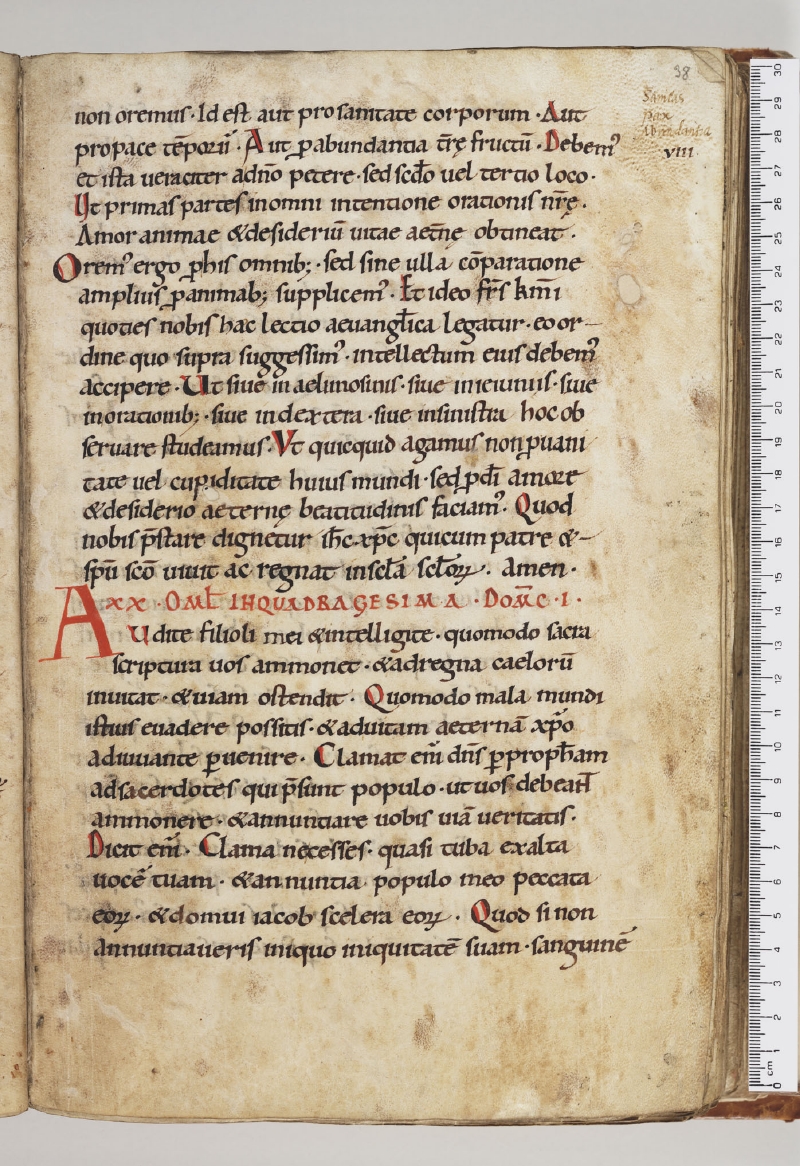 38
Sanitas
pax
Abundantia
VIII
non oremus · Id est aut pro sanitate corporum · Aut
propace te̅porū · Aut ꝑabundantia tr̅ę fructu̅ · Debem᾽
et ista ueraciter adn̅o petere · sed scd̅o uel tertio loco ·
Ut primas partes inomni intentione orationis nr̅ę ·
Amor animae &desideriu̅ uitae aet̅ne obtineat ·
Orem᾽ ergo ꝓhis omnib; · sed sine ulla co̅paratione
amplius ꝓanimab; supplicem᾽ · Et ideo fr̅s km̅i
quoties nobis hac lectio aeuangl̅ica legatur · eo or-
dine quo supra suggessim᾽ · intellectum eius debem᾽
accipere · Ut siue in aelimosinis · siue inieiuniis · siue
inorationib; · siue indextera · siue insinistra hoc ob
seruare studeamus · Vt quicquid agamus non ꝓuani
tate uel cupiditate huius mundi · sed ꝓdi̅ amore
&desiderio aeternę beatitudinis faciam᾽ · Quod
nobis p̅stare dignetur ih̅c xp̅c quicum patre &-
sp̅u sc̅o uiuit ac regnat inscl̅a scl̅oꝝ · amen ·
XX · OML̅ INQUADRAGESIMA · DOM̅C · I ·
AUdite filioli mei &intelligite · quomodo sacra
scriptura uos ammonet · &adregna caeloru̅
inuitat · &uiam ostendit · Quomodo mala mundi
istius euadere possitis · &aduitam aeterna̅ xp̅o
adiuuante ꝑuenire · Clamat eni̅ dn̅s ꝑproph̅am
adsacerdotes qui p̅sunt populo · ut uos debeant
ammonere · &annuntiare uobis uia̅ ueritatis ·
Dicit eni̅ · Clama necesses · quasi tuba exalta
uoce̅ tuam · &annuntia populo meo peccata
eoꝝ · &domui iacob scelera eoꝝ · Quod si non
annuntiaueris iniquo iniquitate̅ suam · sanguine̅
30
29
28
27
26
25
24
23
22
21
20
19
18
17
16
15
14
13
12
11
10
9
8
7
6
5
4
3
2
1
cm
0